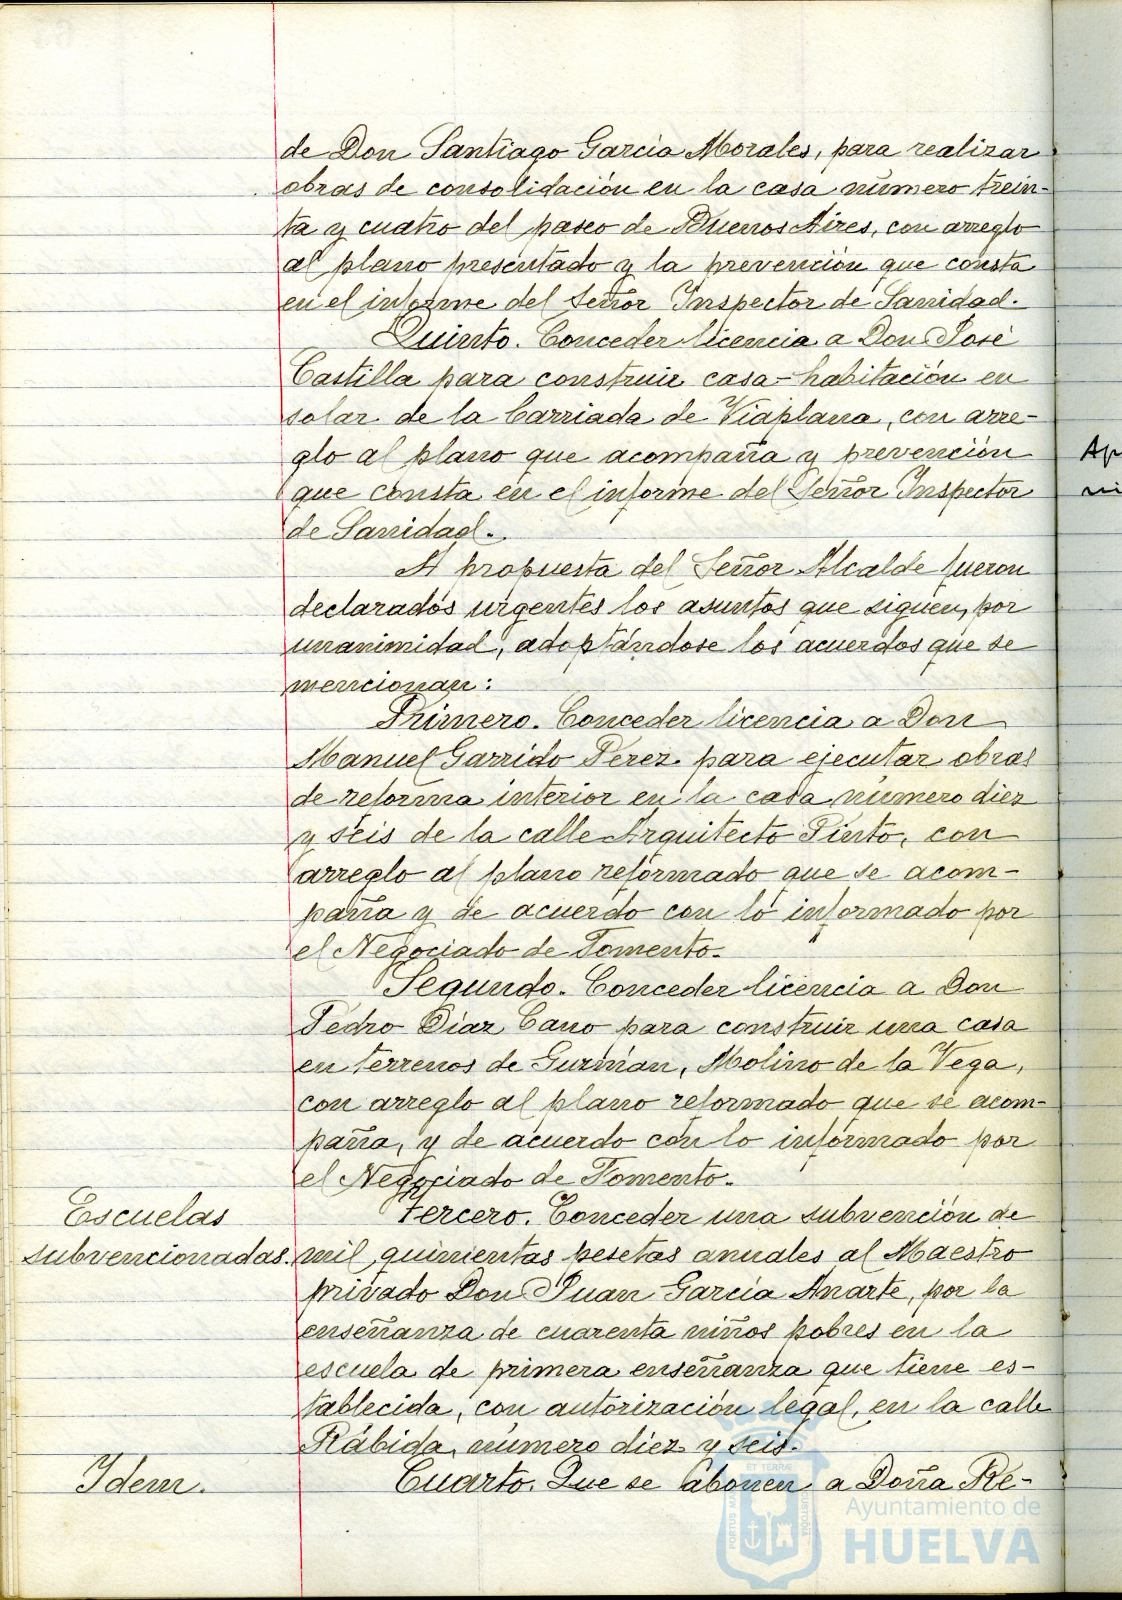 de Don Santiago García Morales, para realizar
obras de consolidación en la casa número trein-
ta y cuatro del paseo de Buenos Aires, con arreglo
al plano presentado y la prevención que consta
en el informe del Señor Inspector de Sanidad.
Quinto. Conceder licencia a Don José
Castilla para construir casa-habitación en
solar de la barriada de Viaplana, con arre-
glo al plano que acompaña y prevención
que consta en el informe del Señor Inspector
de Sanidad.
A propuesta del Señor Alcalde fueron
declarados urgentes los asuntos que siguen, por
unanimidad, adoptándose los acuerdos que se
mencionan:
Primero. Conceder licencia a Don
Manuel Garrido Perez para ejecutar obras
de reforma interior en la casa número diez
y seis de la calle Arquitecto Pinto, con
arreglo al plano reformado que se acom-
paña y de acuerdo con lo informado por
el Negociado de Fomento.
Segundo. Conceder licencia a Don
Pedro Díaz Cano para construir una casa
en terrenos de Guzmán, Molino de la Vega,
con arreglo al plano reformado que se acom-
paña, y de acuerdo con lo informado por
el Negociado de Fomento.
Escuelas
subvencionadas.
Tercero. Conceder una subvención de
mil quinientas pesetas anuales al Maestro
privado Don Juan García Anarte, por la
enseñanza de cuarenta niños pobres en la
escuela de primera enseñanza que tiene es-
tablecida, con autorización legal, en la calle
Rábida, número diez y seis.
Idem.
Cuarto. Que se abonen a Doña Re-
Ap
ni
PORTUS MARIS ET TERRÆ CUSTODIA
Ayuntamiento de
HUELVA